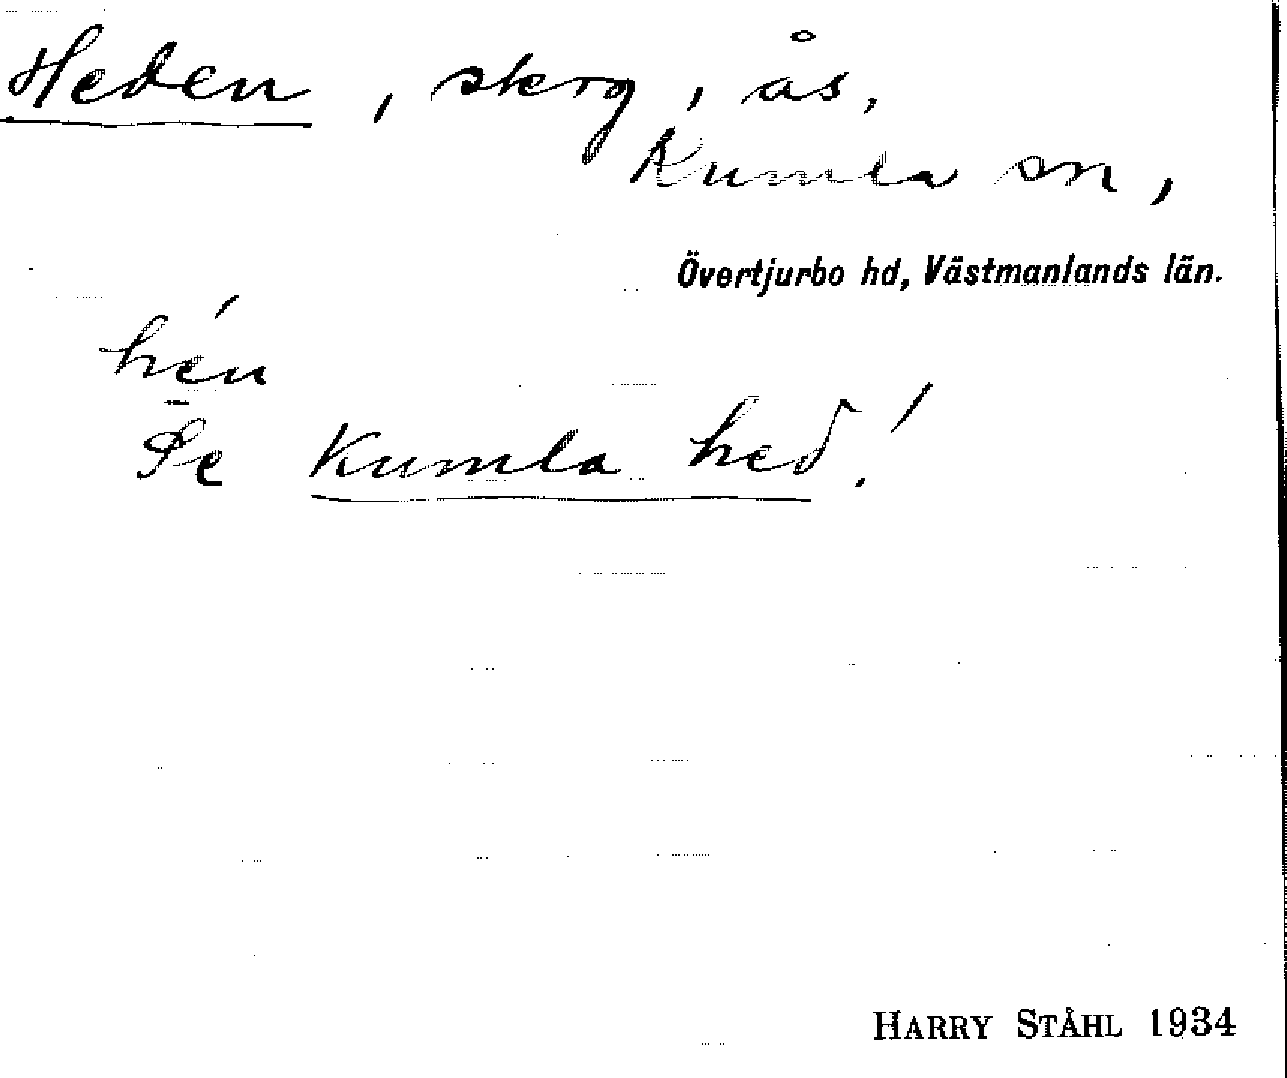 Heden, skog, ås,
Kumla sn,
Övertjurbo hd, Västmanlands län.
hén
Se Kumla hed!
HARRY STÅHL 1934